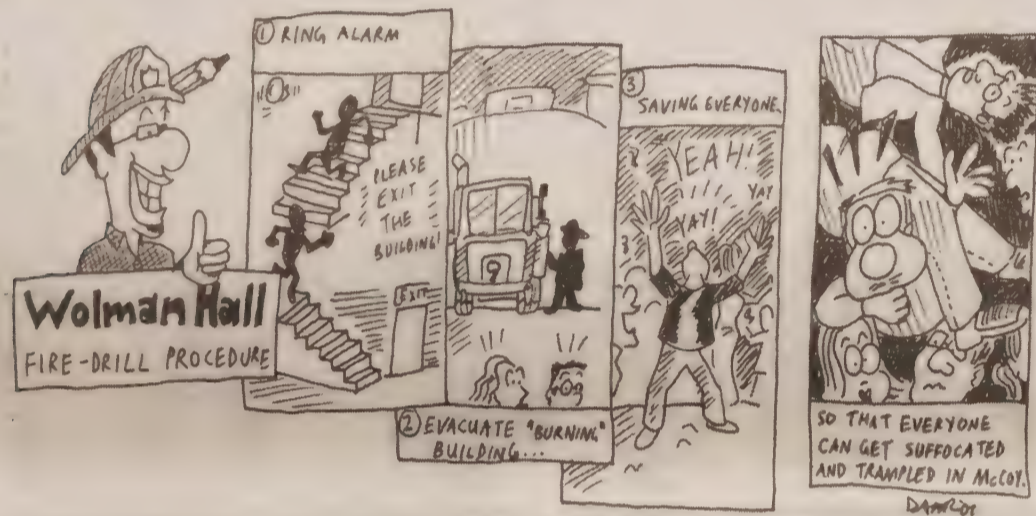 Wolman Hall
FIRE-DRILL PROCEDURE
① RING ALARM
PLEASE
EXIT
THE
BUILDING!
EXIT
9
② EVACUATE "BURNING"
BUILDING...
③
SAVING EVERYONE
YEAH!
YAY
YAY!
SO THAT EVERYONE
CAN GET SUFFOCATED
AND TRAMPLED IN McCOY.